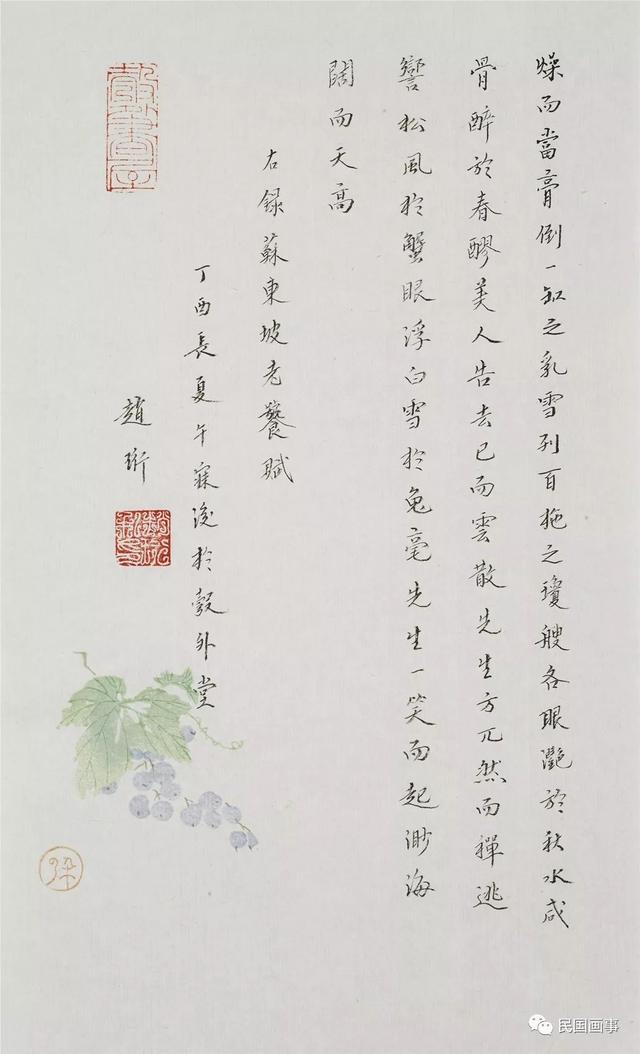 燥而當膏倒一缸之乳雪列百柂之瓊艘各眼灧於秋水咸
骨醉於春醪美人告去已而雲散先生方兀然而禪逃
響松風於蟹眼浮白雪於兔毫先生一笑而起渺海
闊而天高
右錄蘇東坡老饕賦
丁酉長夏午寐後於彀外堂
趙珩
民国画事